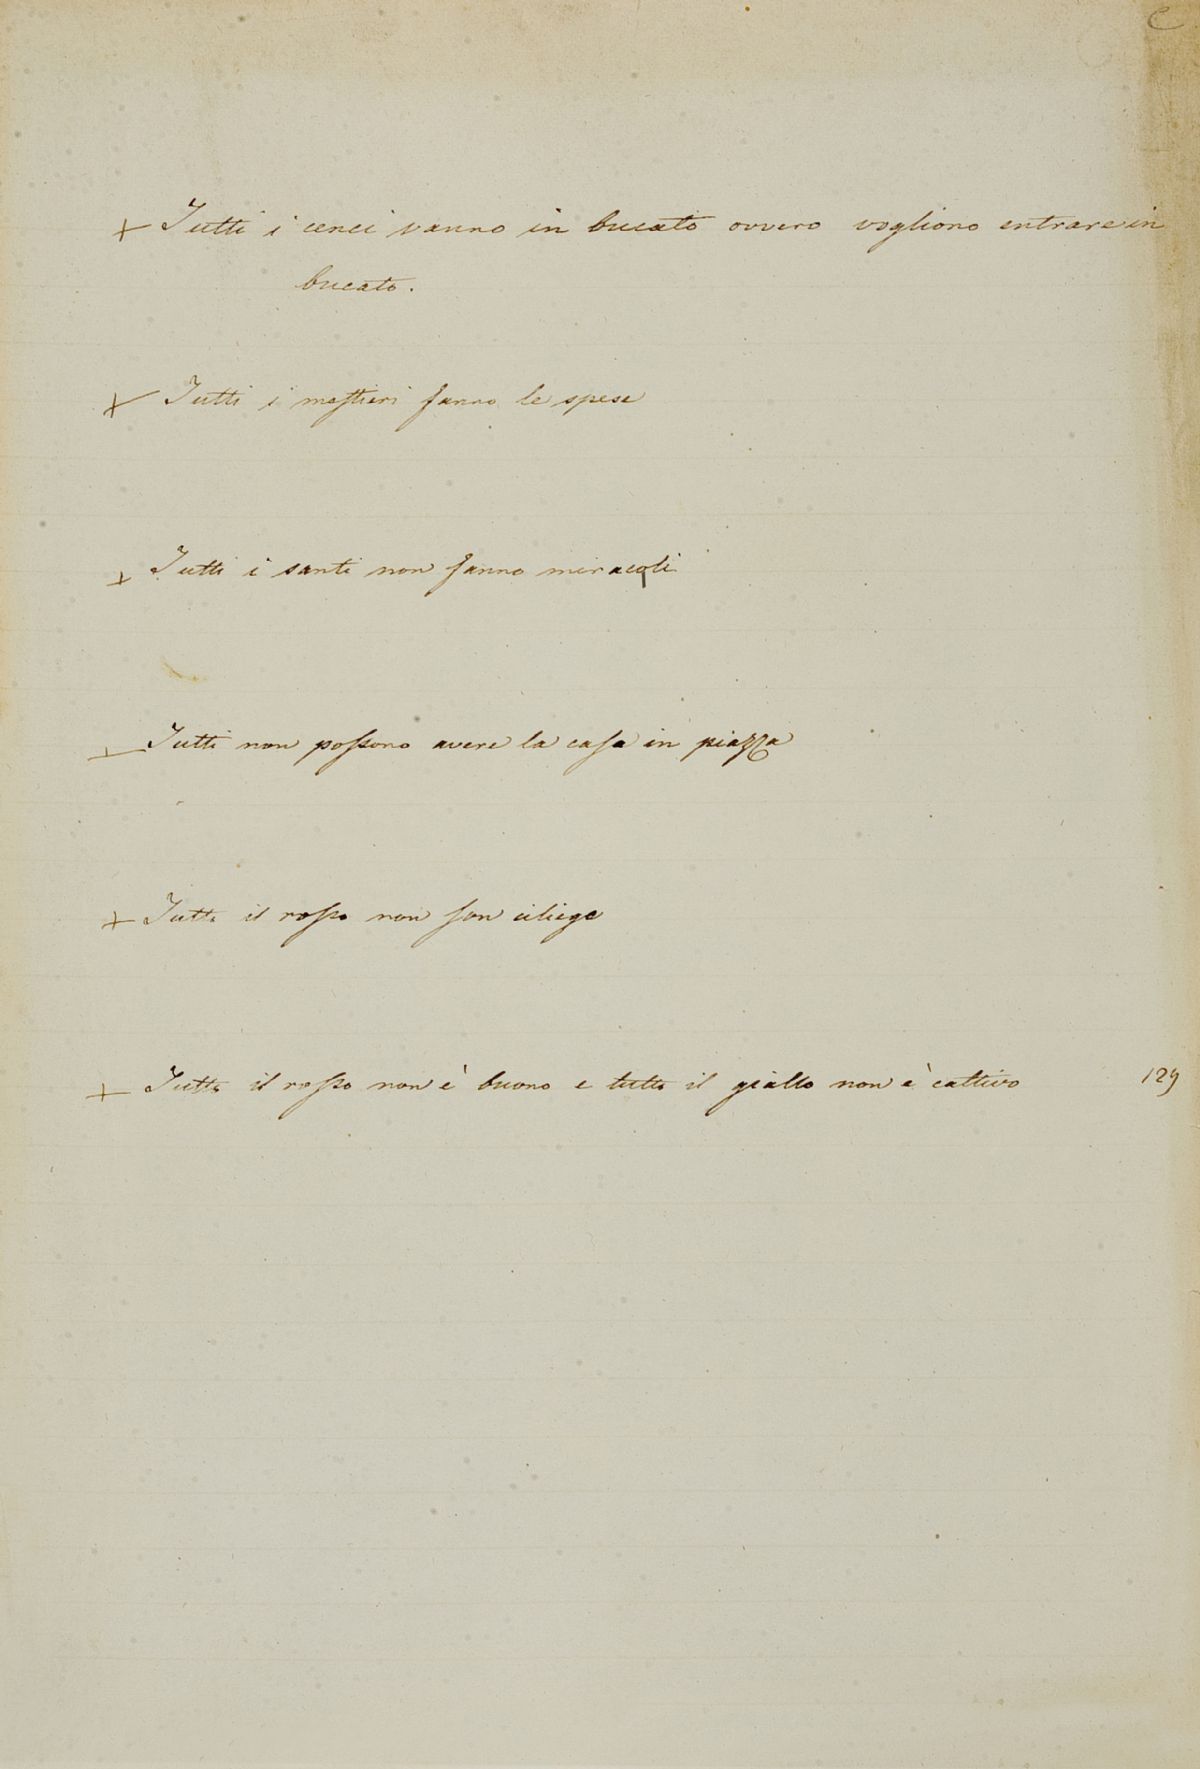 C
+ Tutti i cenci vanno in bucato ovvero vogliono entrare in
bucato.
+ Tutti i mestieri fanno le spese
+ Tutti i santi non fanno miracoli
Tutti non possono avere la casa in piazza
+ Tutto il rosso non son ciliege
+ Tutto il rosso non è buono e tutto il giallo non è cattivo 129